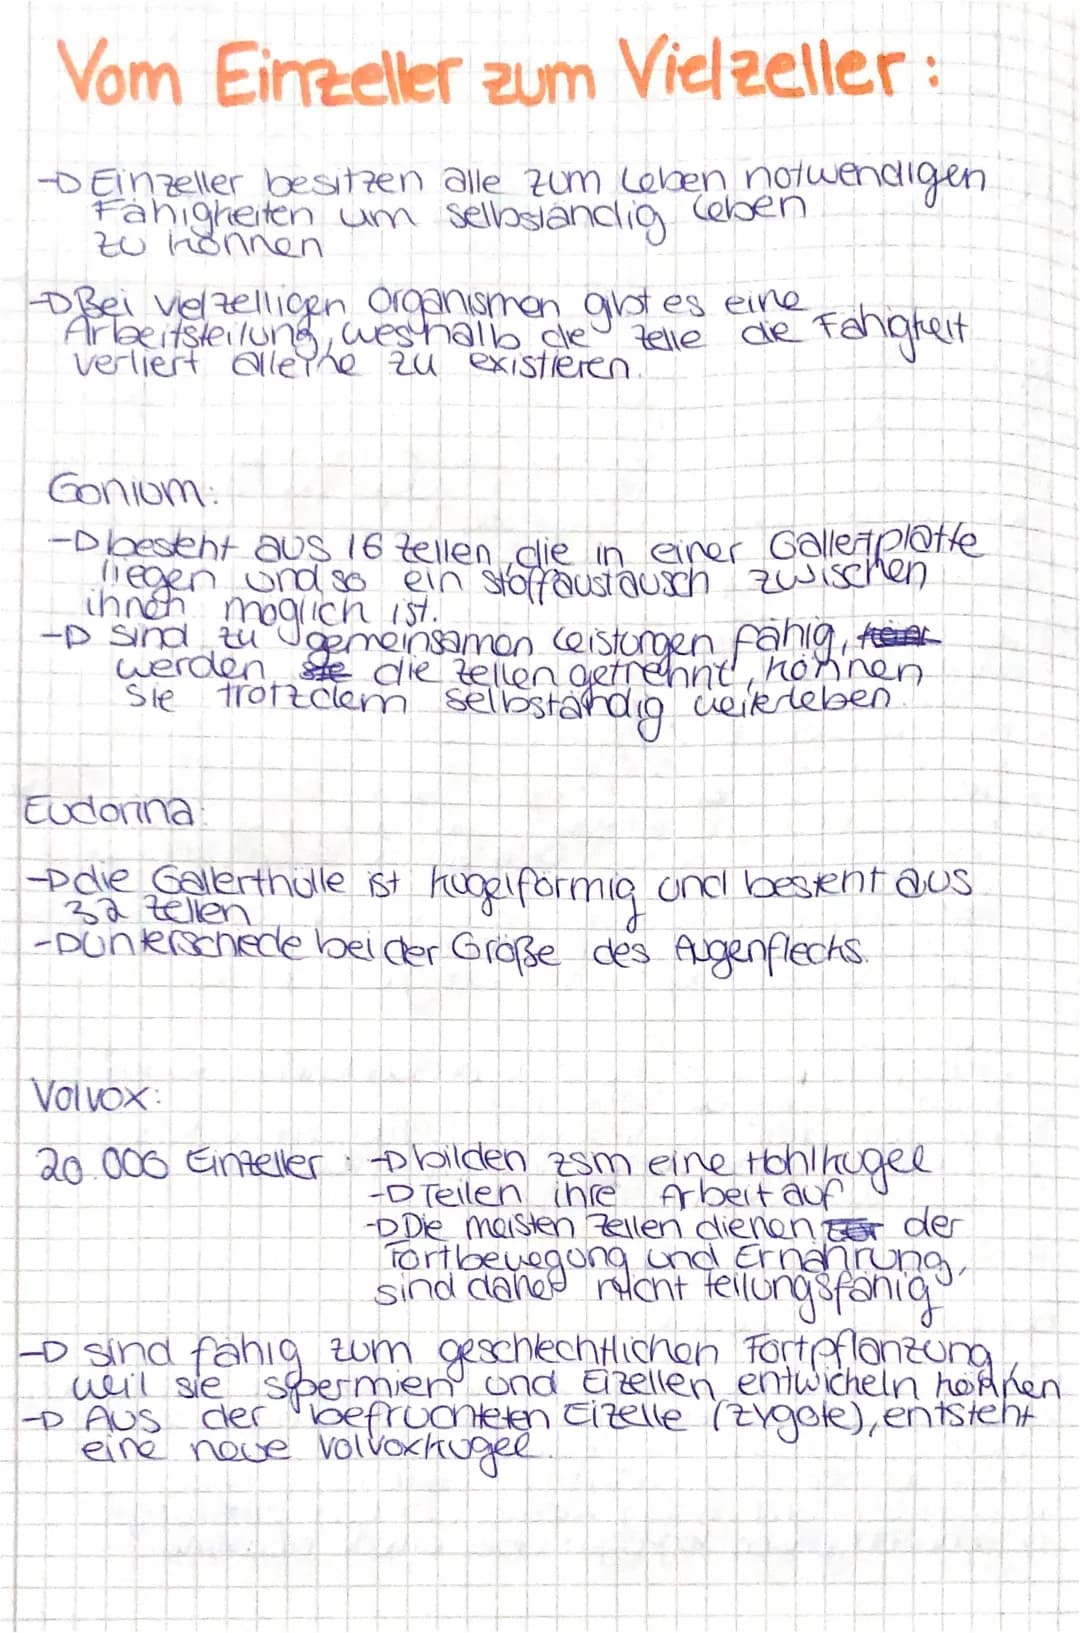 Vom Einzeller zum Vielzeller:
→ Einzeller besitzen alle zum Leben notwendigen
Fähigkeiten um selbständig Leben
zu können
→ Bei vielzelligen Organismen gibt es eine
Arbeitsteilung, weshalb die Zelle die Fähigkeit
verliert alleine zu existieren.
Gonium:
→ besteht aus 16 Zellen, die in einer Gallertplatte
liegen und so ein Stoffaustausch zwischen
ihnen möglich ist.
→ sind zu gemeinsamen Leistungen fähig,
werden die Zellen getrennt, können
Sie trotzdem selbständig weiterleben.
Eudorina:
→ die Gallerthülle ist kugelförmig und besteht aus
32 Zellen
→ Unterschede bei der Größe des Augenflecks.
Volvox:
20.000 Einzeller: → bilden zsm eine Hohlkugel
→ Teilen ihre Arbeit auf
→ Die meisten Zellen dienen der
Fortbewegung und Ernährung,
sind daher nicht teilungsfähig
→ sind fähig zum geschlechtlichen Fortpflanzung,
weil sie spermien und Eizellen entwickeln können
→ Aus der befruchteten Eizelle (Zygote), entsteht
eine neue Volvoxkugel.